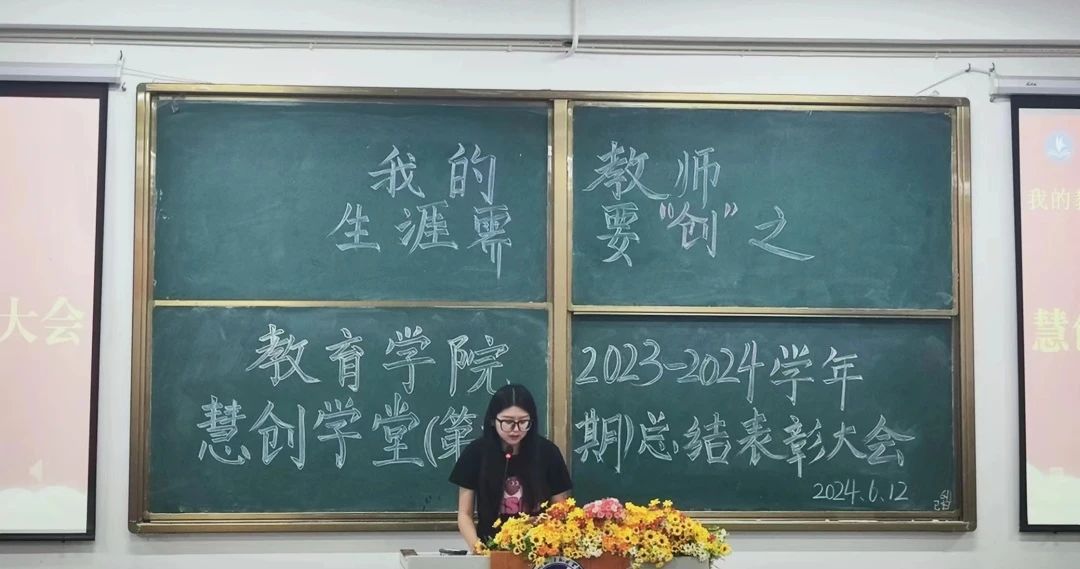 我的教师
生涯需要“创”之
教育学院2023-2024学年
慧创学堂(第 期)总结表彰大会
2024.6.12
大会
我的教
慧创